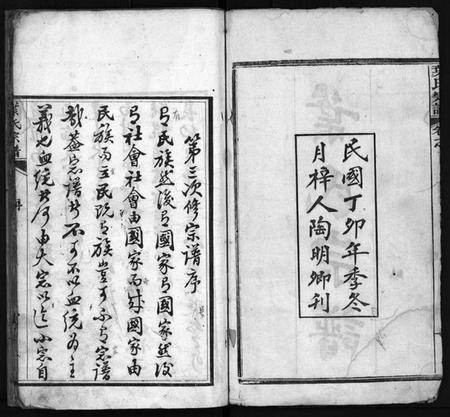 民國丁卯年季冬
月梓人陶明卿刊
第三次修宗谱序
有民族然後有國家有國家然後
有社會社會由國家而成國家由
民族而立民既有族豈可不有宗谱
哉蓋宗谱者不可不以血統為主
義也血統者何由大宗以迄小宗自